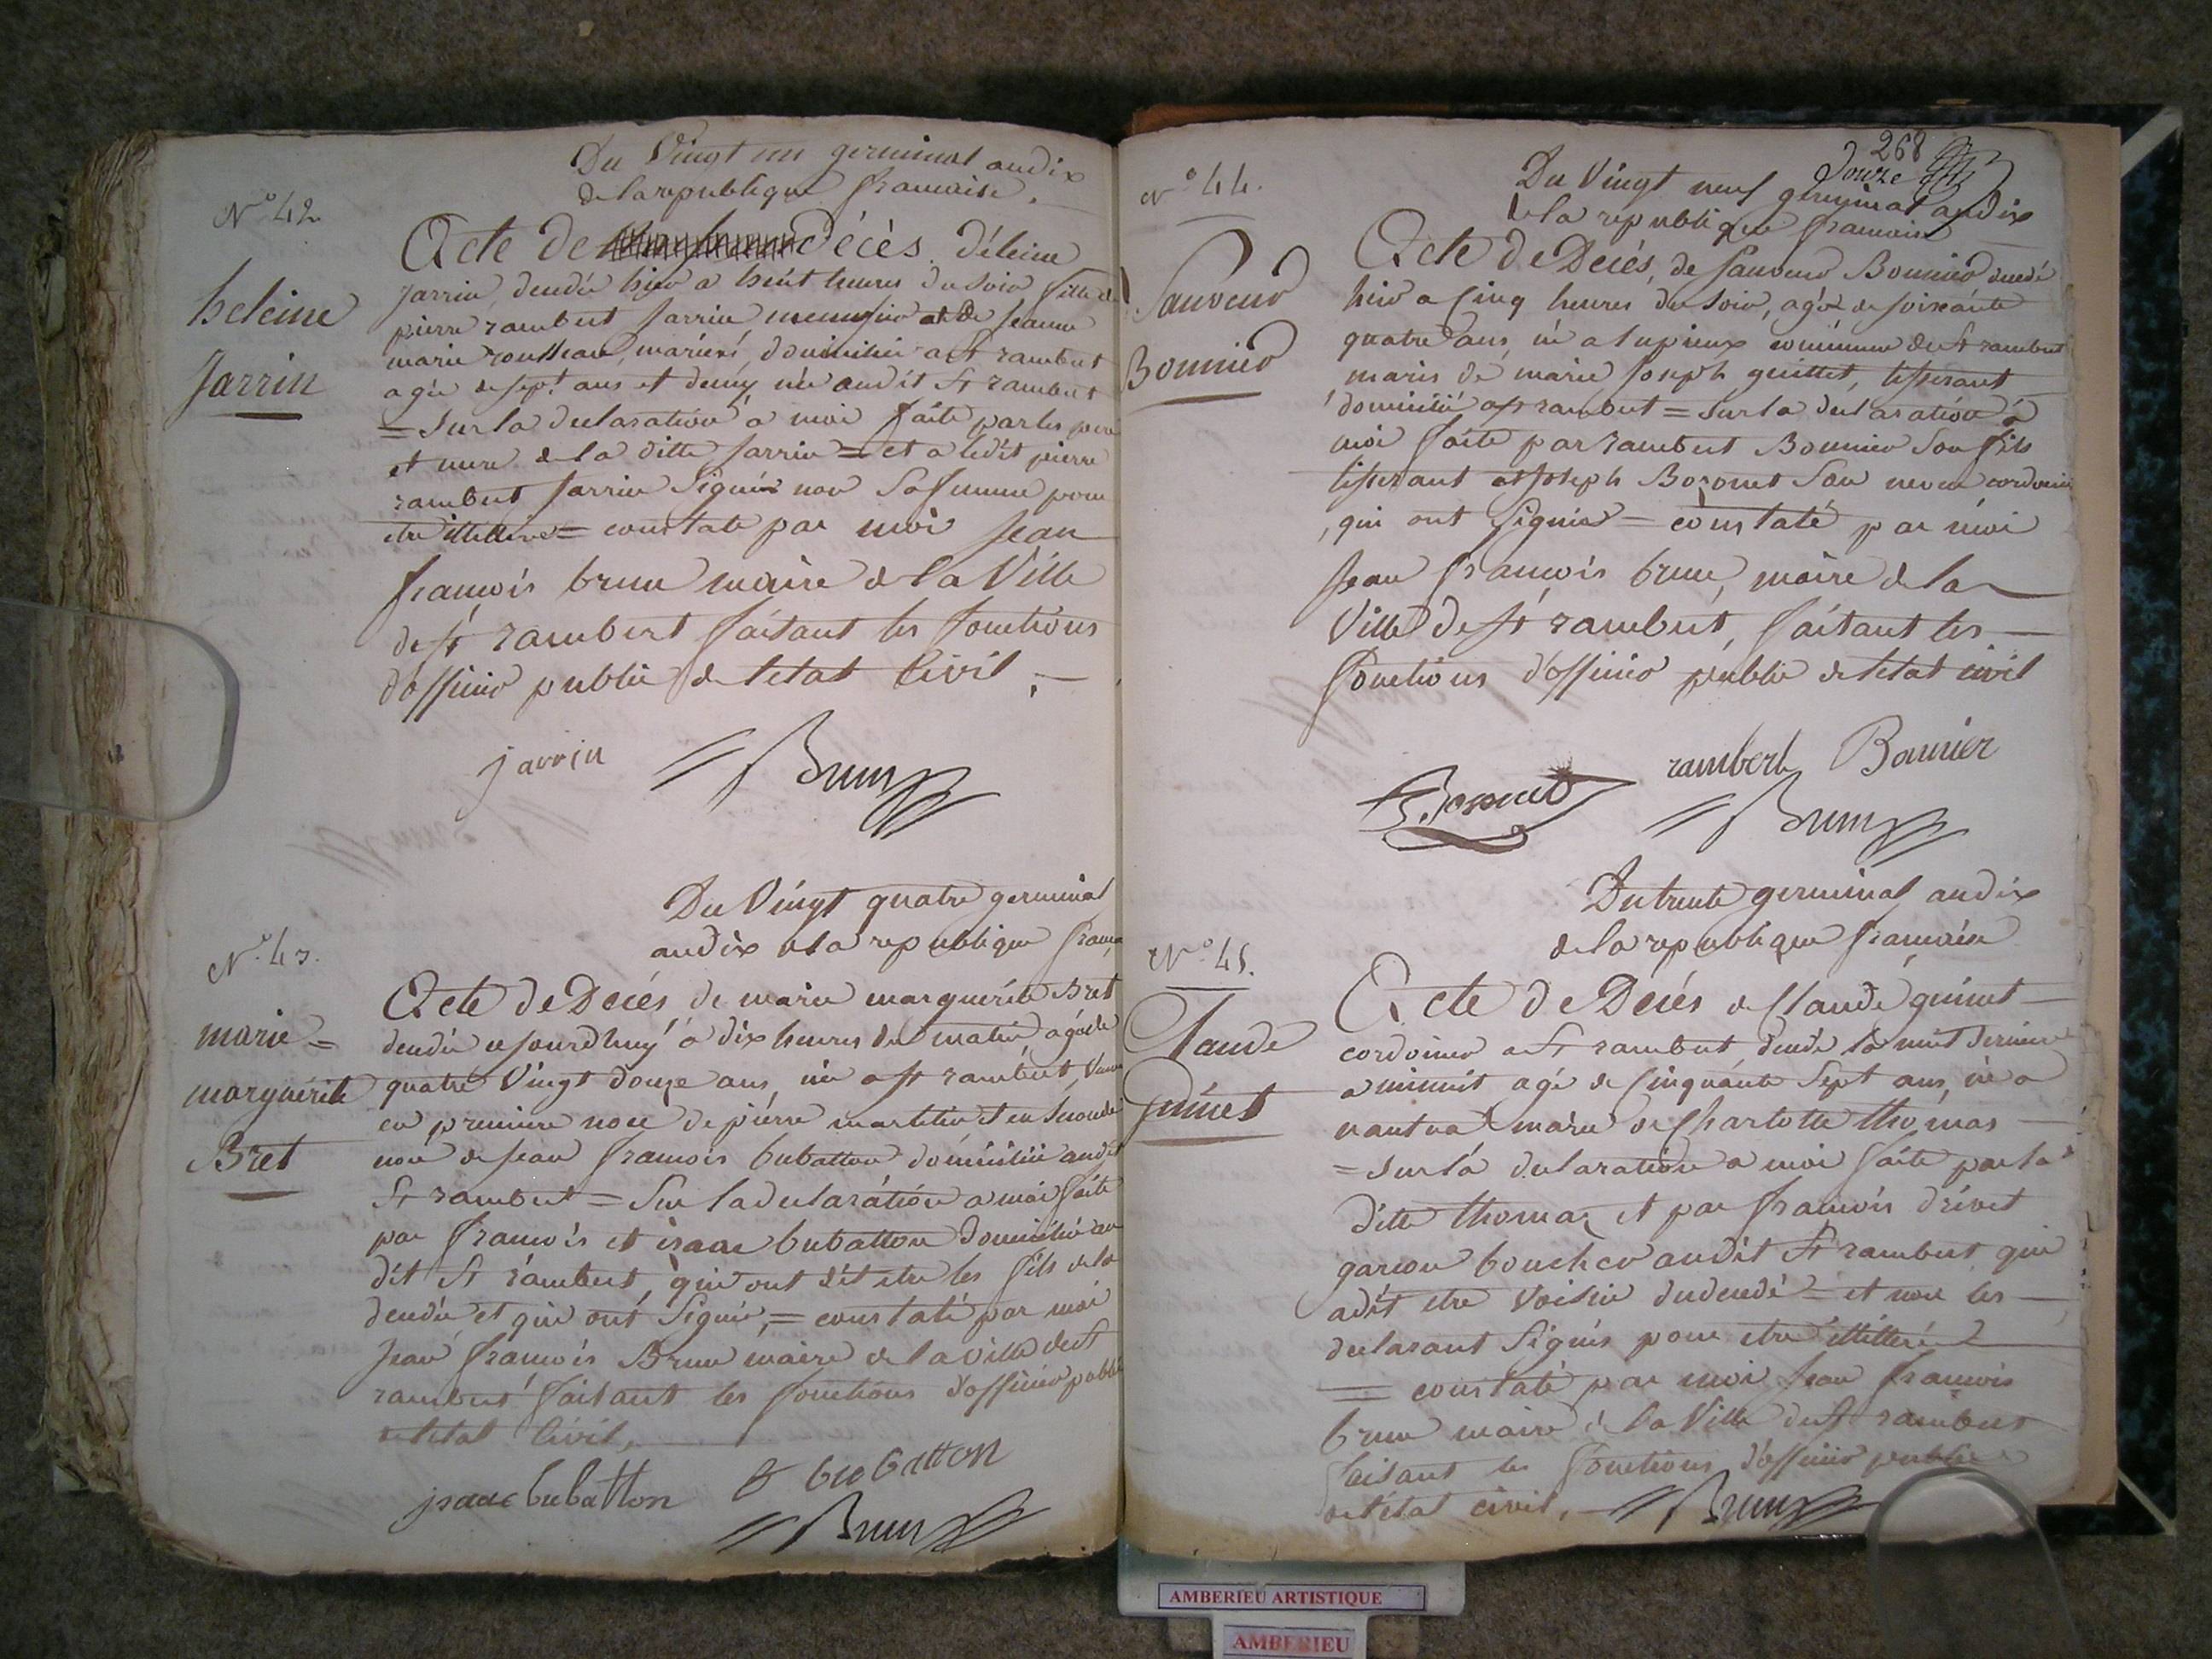 Du Vingt un germinal an dix
de la republique francaise.
N° 42
heleine
Jarrin
Acte de décès d'éleine
Jarrin, décédée hier a huit heures du soir fille de
pierre rambert Jarrin menusier et de Jeanne
marie rousseau, mariés, domiciliés a St rambert
agée de sept ans et demy née audit St rambert
= Sur la declaration a moi faite par les pere
et mere de la ditte Jarrin = et a ledit pierre
rambert Jarrin Signé non Sa femme pour
etre illitérée = constaté par moi Jean
françois brun maire de la Ville
de St rambert faisant les fonctions
d'officier public de l'etat Civil. —
jarrin Brun
Du Vingt quatre germinal
an dix de la republique française
N° 43.
marie =
marguérite
Bret
Acte de Décés de marie marguérite Bret
décédée aujourdhuy a dix heures du matin agée de
quatre Vingt douze ans, née a St rambert, Veuve
en premiere noce de pierre martelin et en Seconde
noce de Jean francois bubatton domiciliée audit
St rambert = Sur la declaration a moi faite
par francois et isaac bubatton domiciliés au
dit St rambert, qui ont dit etre les fils de la
décédée et qui ont Signé, = constaté par moi
Jean françois Brun maire de la Ville de St
rambert faisant les fonctions d'officier public
de l'etat Civil,
isaac bubatton f bubatton
Brun
268
Douze
Du Vingt neuf germinal an dix
de la republique francaise
N° 44.
Sauveur
Bonnier
Acte de Décés, de Sauveur Bonnier décédé
hier a Cinq heures du soir, agé de soixante
quatre ans, né a lupieux commune de St rambert
maris de marie Joseph guillet, tisserant
domicilié a St rambert = Sur la declaration a
moi faite par rambert Bonnier Son fils
tisserant et Joseph Bozonet Son neveu cordonier
, qui ont Signé = constaté par moi
Jean françois brun, maire de la
Ville de St rambert, faisant les —
fonctions d'officier public de l'etat civil
J. Bozonet rambert Bonnier
Brun
Du trente germinal an dix
de la republique francaise
N° 45.
Claude
guinet
Acte de Décés de Claude guinet —
cordonier a St rambert, décédé la nuit derniere
a minuit agé de Cinquante Sept ans, né a
nantua marié de Charlotte thomas —
= Sur la declaration a moi faite par la
ditte thomas et par francois drivet
garcon boucher audit St rambert qui
a dit etre Voisin du décédé = et non les —
declarant Signés pour etre illitteré
= constaté par moi Jean francois
brun maire de la Ville de St rambert
faisant les fonctions d'officier public
de l'état civil, — Brun
AMBERIEU ARTISTIQUE
AMBERIEU